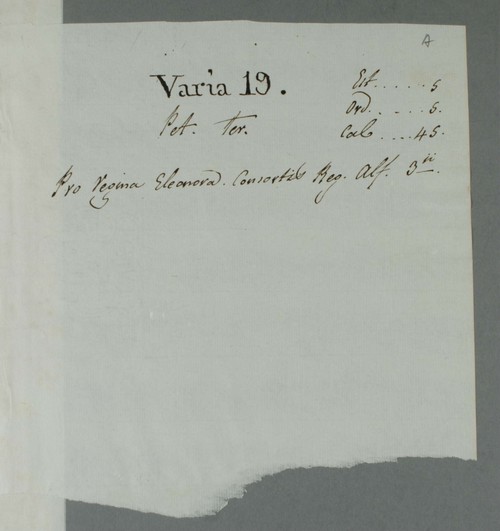 A
Varia 19.
Est. . . . . . 5
Pet. Ter.
Ord. . . . . 5.
Cal . . . . 45.
Pro Regina Eleonora. Consortis Reg. Alf. 3ii.